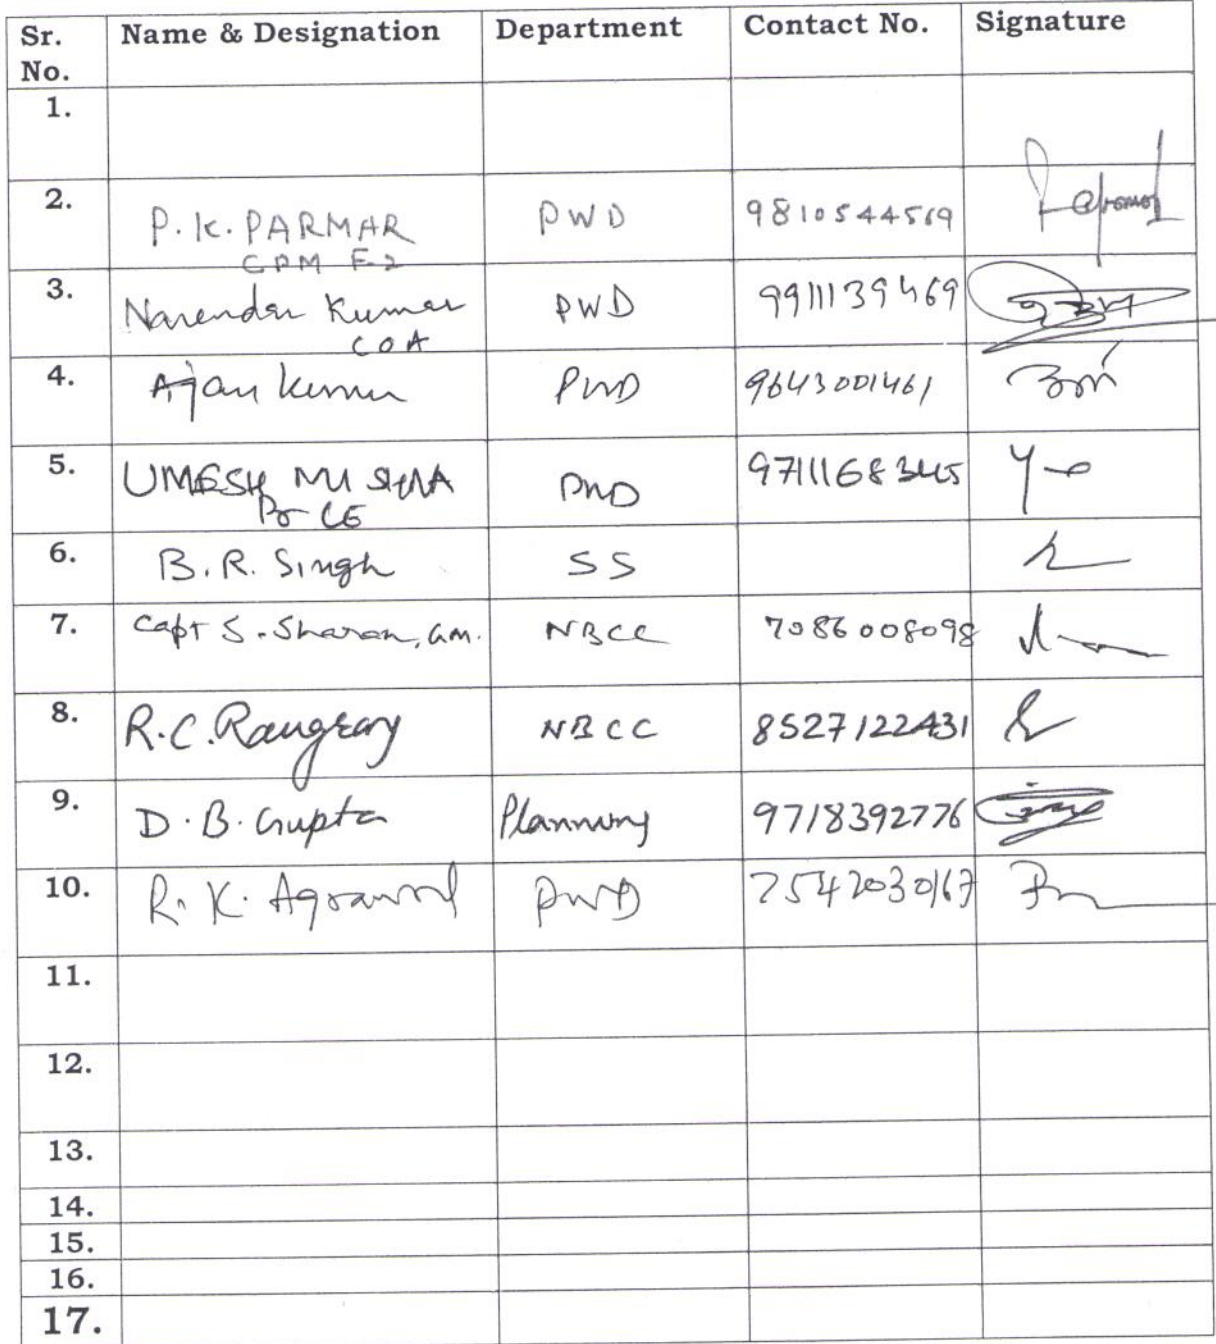 Sr. No. Name & Designation Department Contact No. Signature
1.
2. P.K. PARMAR PWD 9810544569
CPM F-2
3. Narender Kumar PWD 9911139469
COA
4. Ajay Kumar PWD 9643001461
5. UMESH MISHRA PWD 9711168345
Pr CE
6. B.R. Singh SS
7. Capt S. Sharan, GM. NBCC 7086008098
8. R.C. Rangray NBCC 8527122431
9. D.B. Gupta Planning 9718392776
10. R.K. Agrawal PWD 7542030167
11.
12.
13.
14.
15.
16.
17.